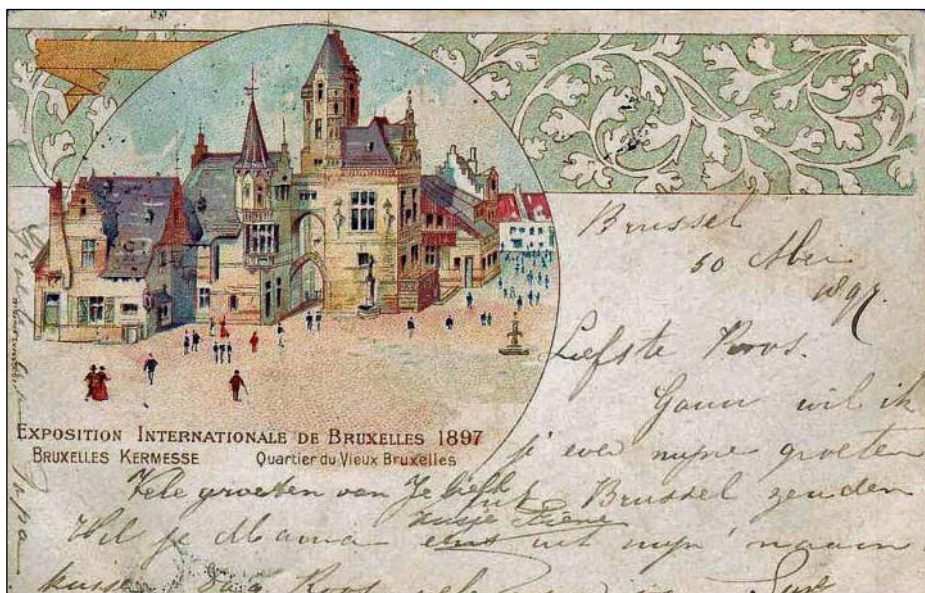 EXPOSITION INTERNATIONALE DE BRUXELLES 1897
BRUXELLES KERMESSE Quartier du Vieux Bruxelles
Brussel
30 Mei
1897.
Liefste Roos.
Gauw wil ik
je even mijne groeten
uit Brussel zenden
Vele groeten van Je liefh
zusje Fiene
Wil je Mama eens uit mijn naam
kussen Dag Roos
papa